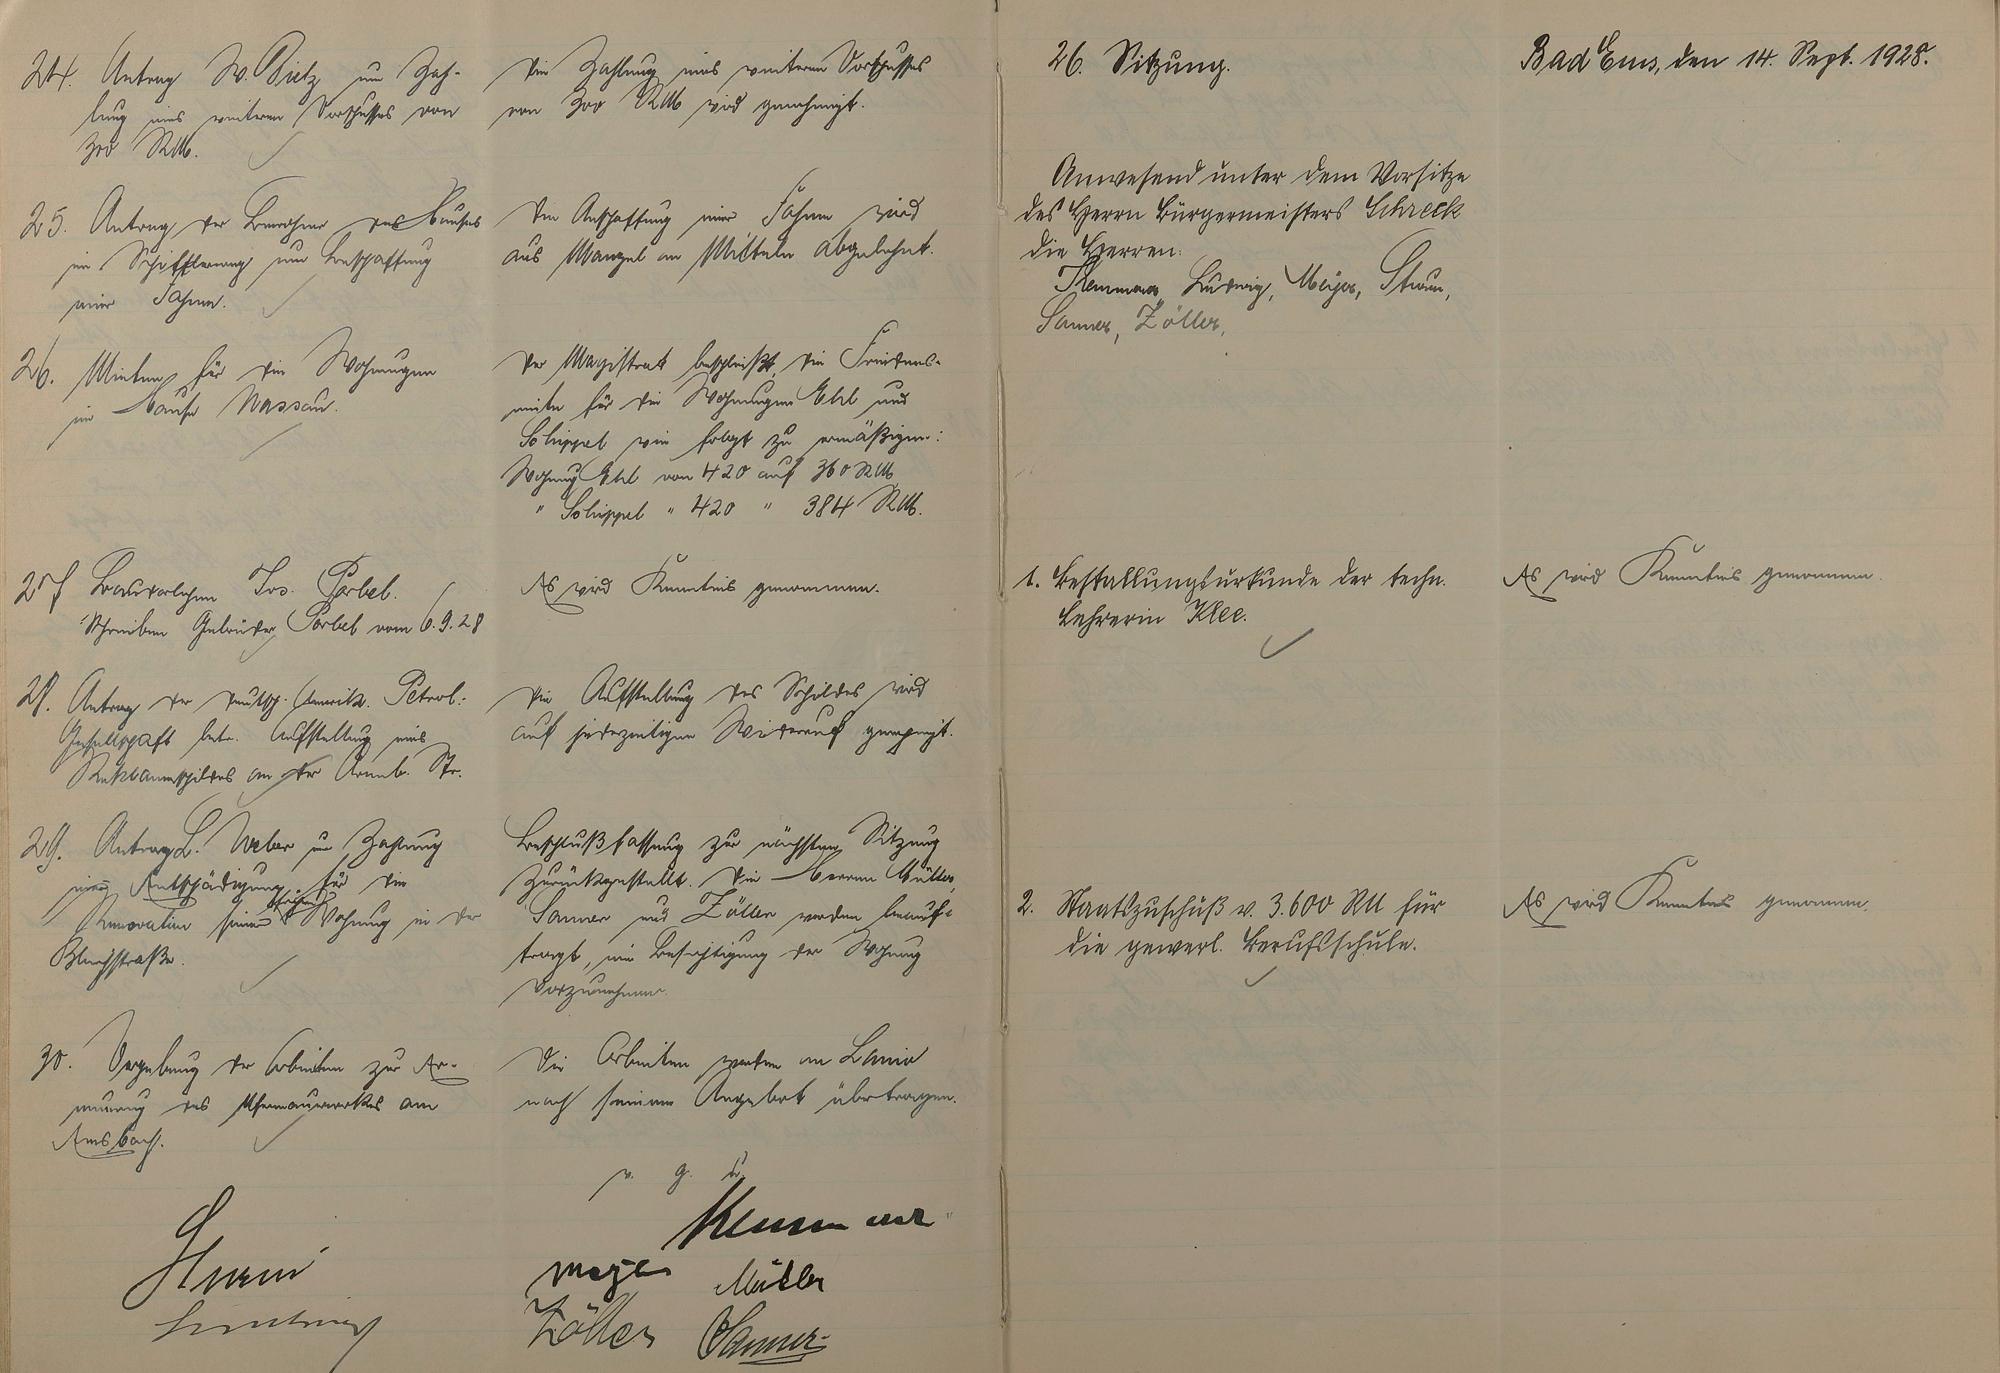 24. Antrag W. Pietz um Zah-
lung eines weiteren Vorschusses von
300 RM.
Die Zahlung eines weiteren Vorschusses
von 300 RM wird genehmigt.
25. Antrag der Bewohner des Hauses
im Schifflerweg um Beschaffung
einer Fahne.
Die Anschaffung einer Fahne wird
aus Mangel an Mitteln abgelehnt.
26. Mieten für die Wohnungen
im Hause Nassau.
Der Magistrat beschließt, die Friedens-
miete für die Wohnungen Ehl und
Schippel wie folgt zu ermäßigen:
Wohnung Ehl von 420 auf 360 RM
" Schippel " 420 " 384 RM.
27 Baudarlehen Jos. Pörbel.
Schreiben Gebrüder Pörbel vom 6.9.28
Es wird Kenntnis genommen.
28. Antrag der Deutsch. Amerik. Petrol.-
Gesellschaft betr. Aufstellung eines
Reklameschildes an der Arenb. Str.
Die Aufstellung des Schildes wird
auf jederzeitigen Widerruf genehmigt.
29. Antrag L. Weber um Zahlung
einer Entschädigung für die
Renovation seiner Wohnung in der
Bleichstraße.
Beschlußfassung zur nächsten Sitzung
zurückgestellt. Die Herren Müller,
Sanner und Zöller werden beauf-
tragt, eine Besichtigung der Wohnung
vorzunehmen.
30. Vergebung der Arbeiten zur Er-
neuerung des Ufermauerwerkes am
Emsbach.
Die Arbeiten werden an Lanio
nach seinem Angebot übertragen.
v. g. u.
Kemmerer
Sturm
Meyer Müller
Ludwig
Zöller Sanner
26. Sitzung.
Bad Ems, den 14. Sept. 1928.
Anwesend unter dem Vorsitze
des Herrn Bürgermeisters Schreck
die Herren:
Kemmerer, Ludwig, Meyer, Sturm,
Sanner, Zöller,
1. Bestallungsurkunde der techn.
Lehrerin Klee.
Es wird Kenntnis genommen.
2. Staatszuschuß v. 3.600 RM für
die gewerbl. Berufsschule.
Es wird Kenntnis genommen.